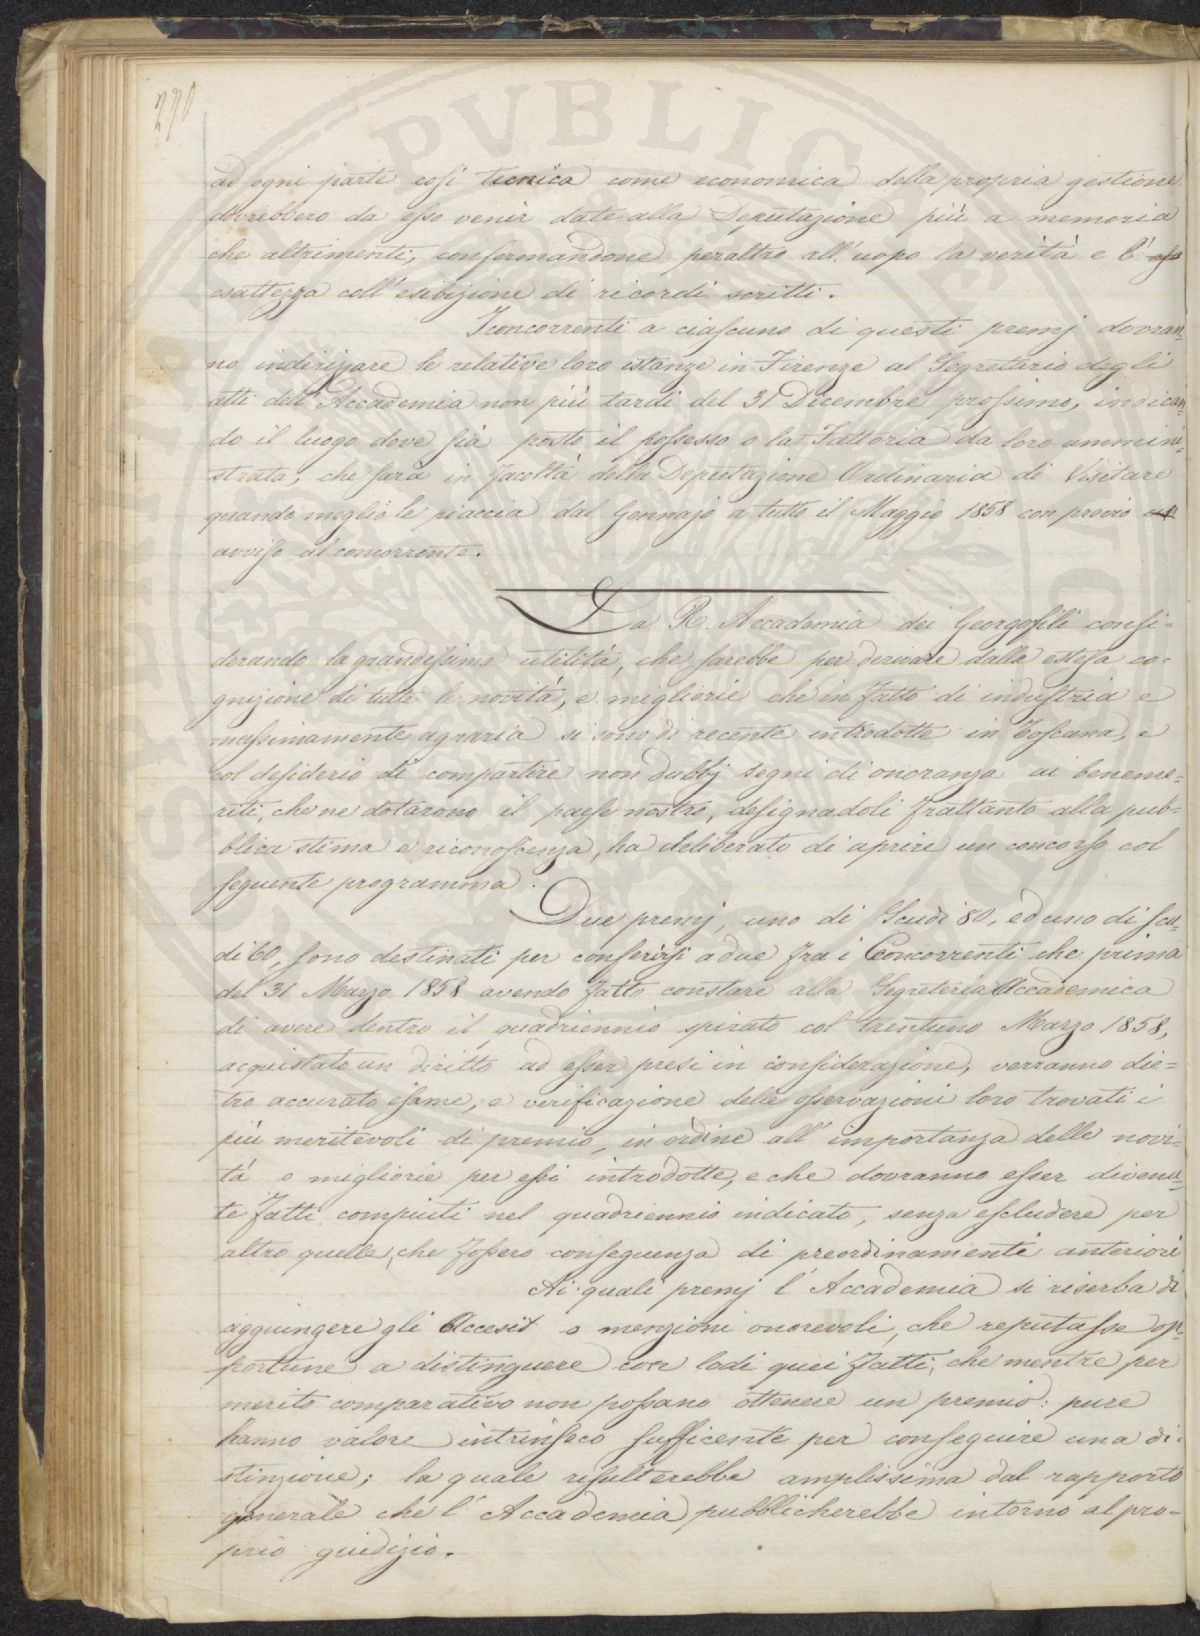 270
ad ogni parte così tecnica come economica della propria gestione
dovrebbero da esso venir date alla Deputazione più a memoria
che altrimenti, confermandone peraltro all'uopo la verità e l'
esattezza coll'esibizione di ricordi scritti.
I concorrenti a ciascuno di questi premj dovran-
no indirizzare le relative loro istanze in Firenze al Segretario degli
atti dell'Accademia non più tardi del 31 Dicembre prossimo, indican-
do il luogo dove sia posto il possesso o la Fattoria da loro ammini-
strata, che sarà in facoltà della Deputazione Ordinaria di visitare
quando meglio le piaccia dal Gennajo a tutto il Maggio 1858 con previo
avviso al concorrente.
La R. Accademia dei Georgofili consi-
derando la grandissima utilità, che sarebbe per derivare dalla estesa co-
gnizione di tutte le novità, e migliorie che in fatto di industria e
massimamente agraria si sono di recente introdotte in Toscana, e
col desiderio di compartire non dubbj segni di onoranza ai beneme-
riti, che ne dotarono il paese nostro, designadoli frattanto alla pub-
blica stima e riconoscenza, ha deliberato di aprire un concorso col
seguente programma.
Due premj, uno di Scudi 80, ed uno di scu-
di 60, sono destinati per conferirsi a due fra i Concorrenti che prima
del 31 Marzo 1858 avendo fatto constare alla Segreteria Accademica
di avere dentro il quadriennio spirato col trentuno Marzo 1858,
acquistato un diritto ad esser presi in considerazione, verranno die-
tro accurato esame, e verificazione delle osservazioni loro trovati i
più meritevoli di premio, in ordine all'importanza delle novi-
tà o migliorie per essi introdotte, e che dovranno esser divenu-
te fatti compiuti nel quadriennio indicato, senza escludere per
altro quelle, che fossero conseguenza di preordinamenti anteriori
Ai quali premj l'Accademia si riserba di
aggiungere gli Accesit o menzioni onorevoli, che reputasse op-
portune a distinguere con lodi quei fatti, che mentre per
merito comparativo non possano ottenere un premio: pure
hanno valore intrinseco sufficente per conseguire una di-
stinzione; la quale risulterebbe amplissima dal rapporto
generale che l'Accademia pubblicherebbe intorno al pro-
prio giudizio.